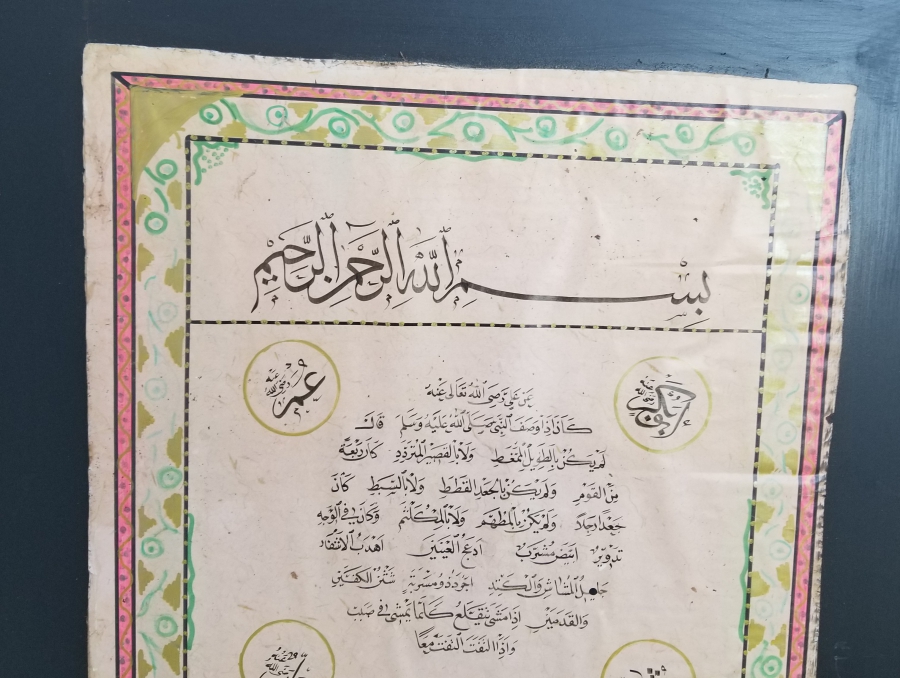 بسم الله الرحمن الرحيم
ابوبكر رضي الله عنه
عمر رضي الله عنه
عن علي رضي الله تعالى عنه
كان اذا وصف النبي صلى الله عليه وسلم قال
لم يكن بالطويل الممغط ولا بالقصير المتردد كان ربعة
من القوم ولم يكن بالجعد القطط ولا بالسبط كان
جعدا رجلا ولم يكن بالمطهم ولا بالمكلثم وكان في الوجه
تدوير ابيض مشرب ادعج العينين اهدب الاشفار
جليل المشاش والكتد اجرد ذو مسربة شثن الكفين
والقدمين اذا مشى يتقلع كانما يمشي في صبب
واذا التفت التفت معا